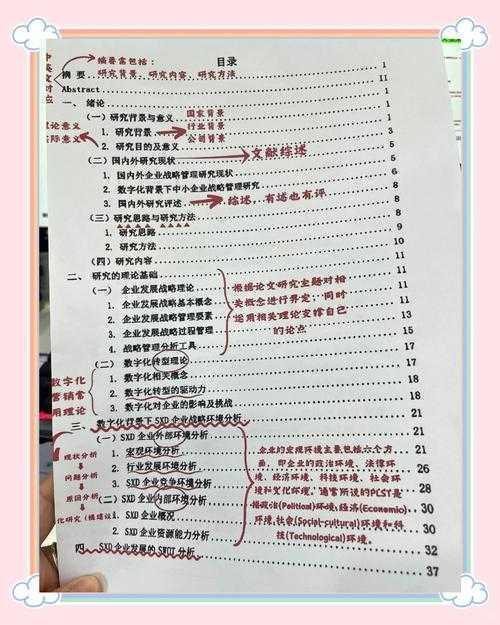 目录
摘要需包括：
研究背景、研究内容、研究方法
摘 要 1
Abstract 11
一、 绪论 1
（一）研究背景与意义 1
国家背景
1. 研究背景 1
行业背景
公司背景
2. 研究目的及意义 3
实际意义
（二）国内外研究现状 5
文献综述
1. 国内外企业战略管理研究现状 5
2. 数字化背景下中小企业战略管理研究 6
3. 国内外研究评述 8
综述，有述也有评
（三）研究思路与研究方法 8
1. 研究思路 8
2. 研究方法 9
（四）研究内容 10
二、 研究的理论基础 11
（一） 企业发展战略理论 11
1. 企业发展战略基本概念 11
2. 企业发展战略管理要素 11
3. 企业发展战略过程管理 13
4. 战略管理分析工具 15
根据论文研究主题对相
关概念进行界定；同时
运用相关理论支撑自己
的论点
（二） 数字化转型理论 17
1. 数字化相关概念 17
2. 数字化转型的驱动力 18
3. 数字化对企业的影响及挑战 18
数字化
营销常
用理论
三、 数字化背景下 SXD 企业战略环境分析 21
（一）SXD 企业外部环境分析 21
1. 宏观环境分析 21
2. 行业发展环境分析 26
3. SXD 企业竞争环境分析 28
（二）SXD 企业内部环境分析 30
1. SXD 企业概况 30
2. SXD 企业资源能力分析 32
四、 SXD 企业发展的 SWOT 分析 37
现状分析
问题分析
原因分析
企业的宏观环境主要包括六个方
面，即企业的政治环境、法律环
境、经济环境、科技环境、社会环
境和文化环境。通常所说的PCST是
指政治(Political)环境、经济(Economic)
环境、社会(Social-cultural)环境和科
技(Technological)环境。